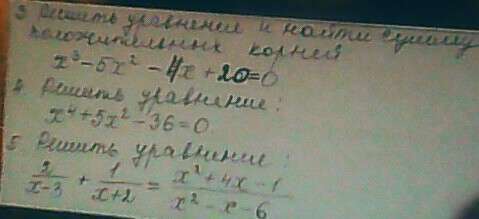 3 Решить уравнение и найти сумму
положительных корней
x³-5x²-4x+20=0
4. Решить уравнение:
x⁴+5x²-36=0
5. Решить уравнение:
2/(x-3) + 1/(x+2) = (x²+4x-1)/(x²-x-6)